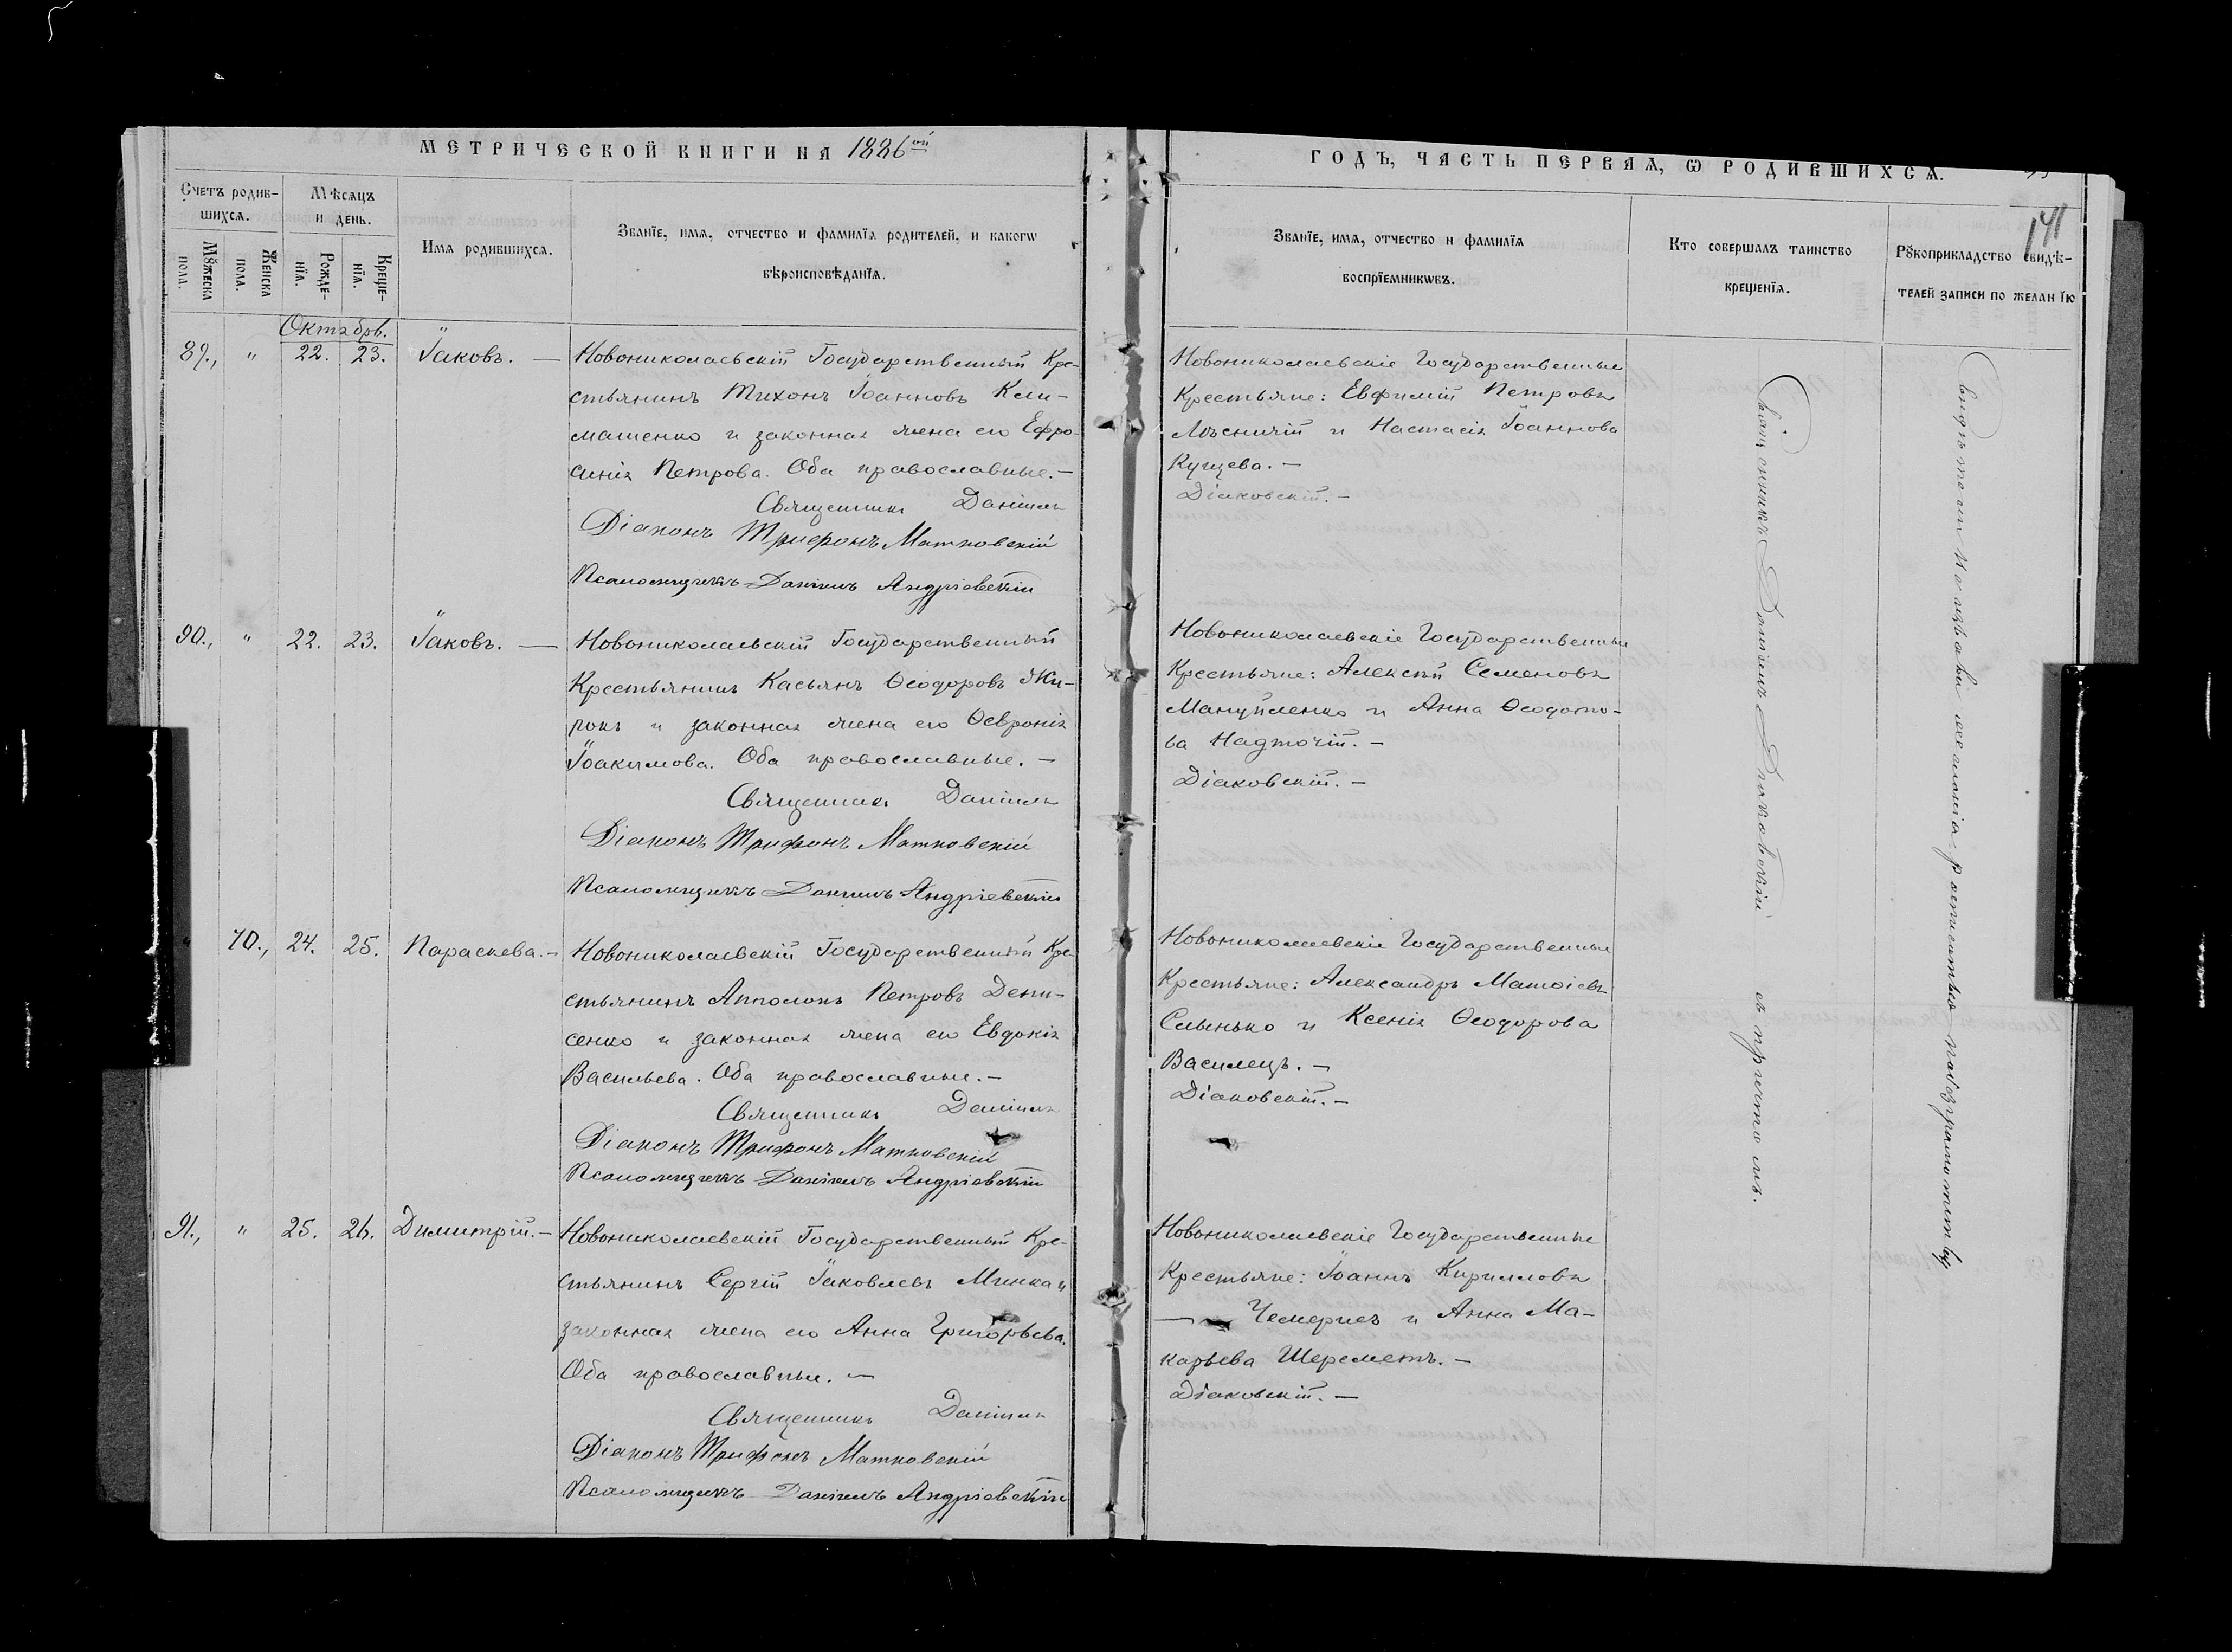 МЕТРИЧЕСКОЙ КНИГИ НА 1886ой
ГОДЪ, ЧАСТЬ ПЕРВАЯ, Ѡ РОДИВШИХСѦ.
141
Счетъ родив-
шихсѧ.
Мѣсяцъ
и день.
Мꙋжеска
пола.
Женска
пола.
Рожде-
нїѧ.
Креще-
нїѧ.
Имѧ родившихсѧ.
Званїе, имѧ, отчество и фамилїѧ родителей, и какогѡ
вѣроисповѣданїѧ.
Званїе, имѧ, отчество и фамилїѧ
воспрїемникѡвъ.
Кто совершалъ таинство
крещенїѧ.
Рꙋкоприкладство свидѣ-
телей записи по желанїю
Октябрь.
89., " 22. 23. Іаковъ. —
Новониколаевскій Государственный Кре-
стьянинъ Тихонъ Іоанновъ Кли-
машенко и законная жена его Ефро-
синія Петрова. Оба православные. —
Священникъ Даніилъ
Діаконъ Трифонъ Матковскій
Псаломщикъ Даніилъ Андріевскій
Новониколаевскіе Государственные
Крестьяне: Евфимій Петровъ
Лѣсничій и Настасія Іоаннова
Куцева. —
Діаковскій. —
90., " 22. 23. Іаковъ. —
Новониколаевскій Государственный
Крестьянинъ Касьянъ Ѳеодоровъ Жи-
рокъ и законная жена его Ѳевронія
Іоакимова. Оба православные. —
Священникъ Даніилъ
Діаконъ Трифонъ Матковскій
Псаломщикъ Даніилъ Андріевскій
Новониколаевскіе Государственные
Крестьяне: Алексѣй Семеновъ
Мануйленко и Анна Ѳеодото-
ва Надточій. —
Діаковскій. —
" 70., 24. 25. Параскева. —
Новониколаевскій Государственный Кре-
стьянинъ Апполонъ Петровъ Дени-
сенко и законная жена его Евдокія
Васильева. Оба православные. —
Священникъ Даніилъ
Діаконъ Трифонъ Матковскій
Псаломщикъ Даніилъ Андріевскій
Новониколаевскіе Государственные
Крестьяне: Александръ Матѳіевъ
Слынько и Ксенія Ѳеодорова
Василецъ. —
Діаковскій. —
91., " 25. 26. Димитрій. —
Новониколаевскій Государственный Кре-
стьянинъ Сергій Іаковлевъ Минка и
законная жена его Анна Григорьева.
Оба православные. —
Священникъ Даніилъ
Діаконъ Трифонъ Матковскій
Псаломщикъ Даніилъ Андріевскій
Новониколаевскіе Государственные
Крестьяне: Іоаннъ Кирилловъ
— Чемерисъ и Анна Ма-
карьева Шереметъ. —
Діаковскій. —
Священникъ Даніилъ Діаковскій съ причтомъ.
Свидѣтели не изъявили желанія росписаться